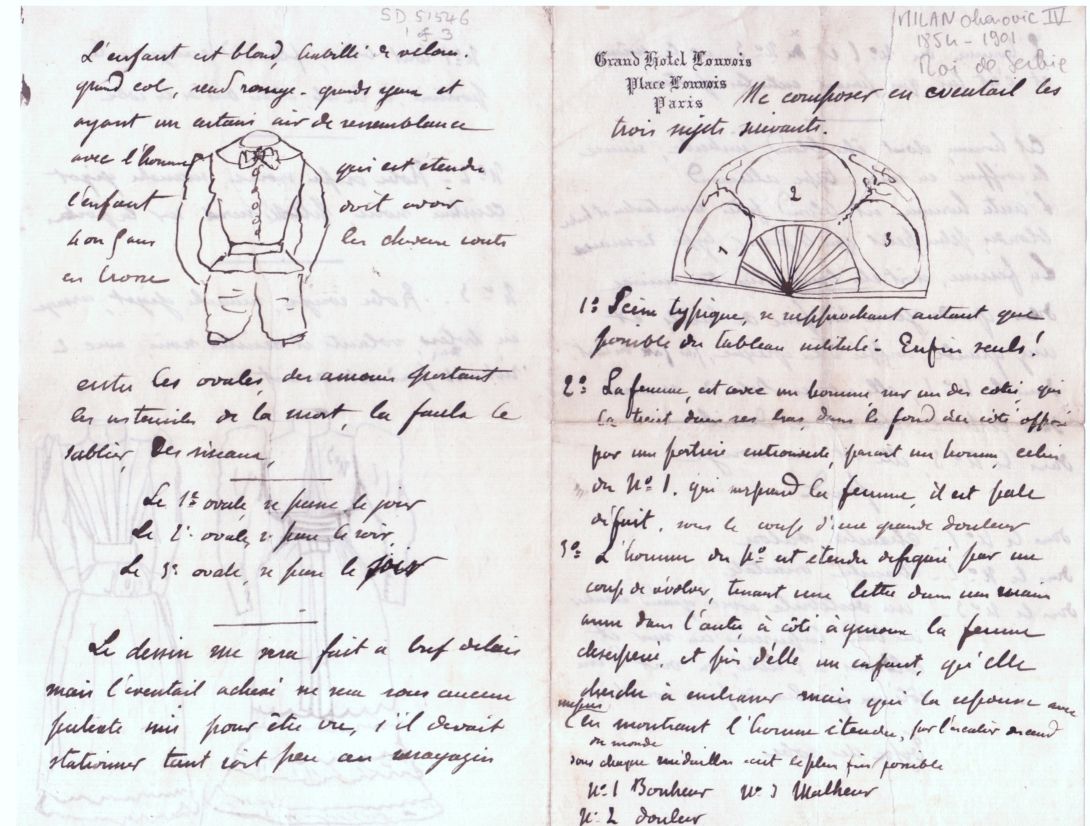 SD 51546
1 of 3
MILAN Obrenovic IV
1854 - 1901
Roi de Serbie
L'enfant est blond, habillé de velours.
grand col, noeud rouge. grands yeux et
ayant un certain air de ressemblance
avec l'homme qui est étendu
l'enfant doit avoir
4 on 5 ans les cheveux courts
en brosse
entre les ovales, des amours portant
les ustensiles de la mort, la faulx le
sablier, des ciseaux,
Le 1er ovale se passe le jour
Le 2e ovale, se passe le soir,
Le 3e ovale, se passe le soir
Le dessin me sera fait a bref délais
mais l'éventail achevé ne sera sous aucun
prétexte mis pour être vu, s'il devait
stationner tant soit peu au magazin
Grand Hôtel Louvois
Place Louvois
Paris
Me composer en éventail les
trois sujets suivants.
1 2 3
1o Scène typique, se rapprochant autant que
possible du tableau intitulé - Enfin seuls!
2o La femme, est avec un homme sur un des cotés, qui
la tient dans ses bras, dans le fond du côté opposé
par un portière entrouverte, parait un homme, celui
du No 1. qui surprend la femme, il est pale
défait. sous le coup d'une grande douleur
3o L'homme du No est étendu defiguré par un
coup de révolver, tenant une lettre dans une main
arme dans l'autre à côté à genoux la femme
desesperé, et près d'elle un enfant, qu'elle
cherche à embrasser mais qui la repousse avec
mepris
en montrant l'homme étendu,
du monde
sous chaque médaillon écrit le plus fin possible
No 1 Bonheur No 3 Malheur
No 2 douleur